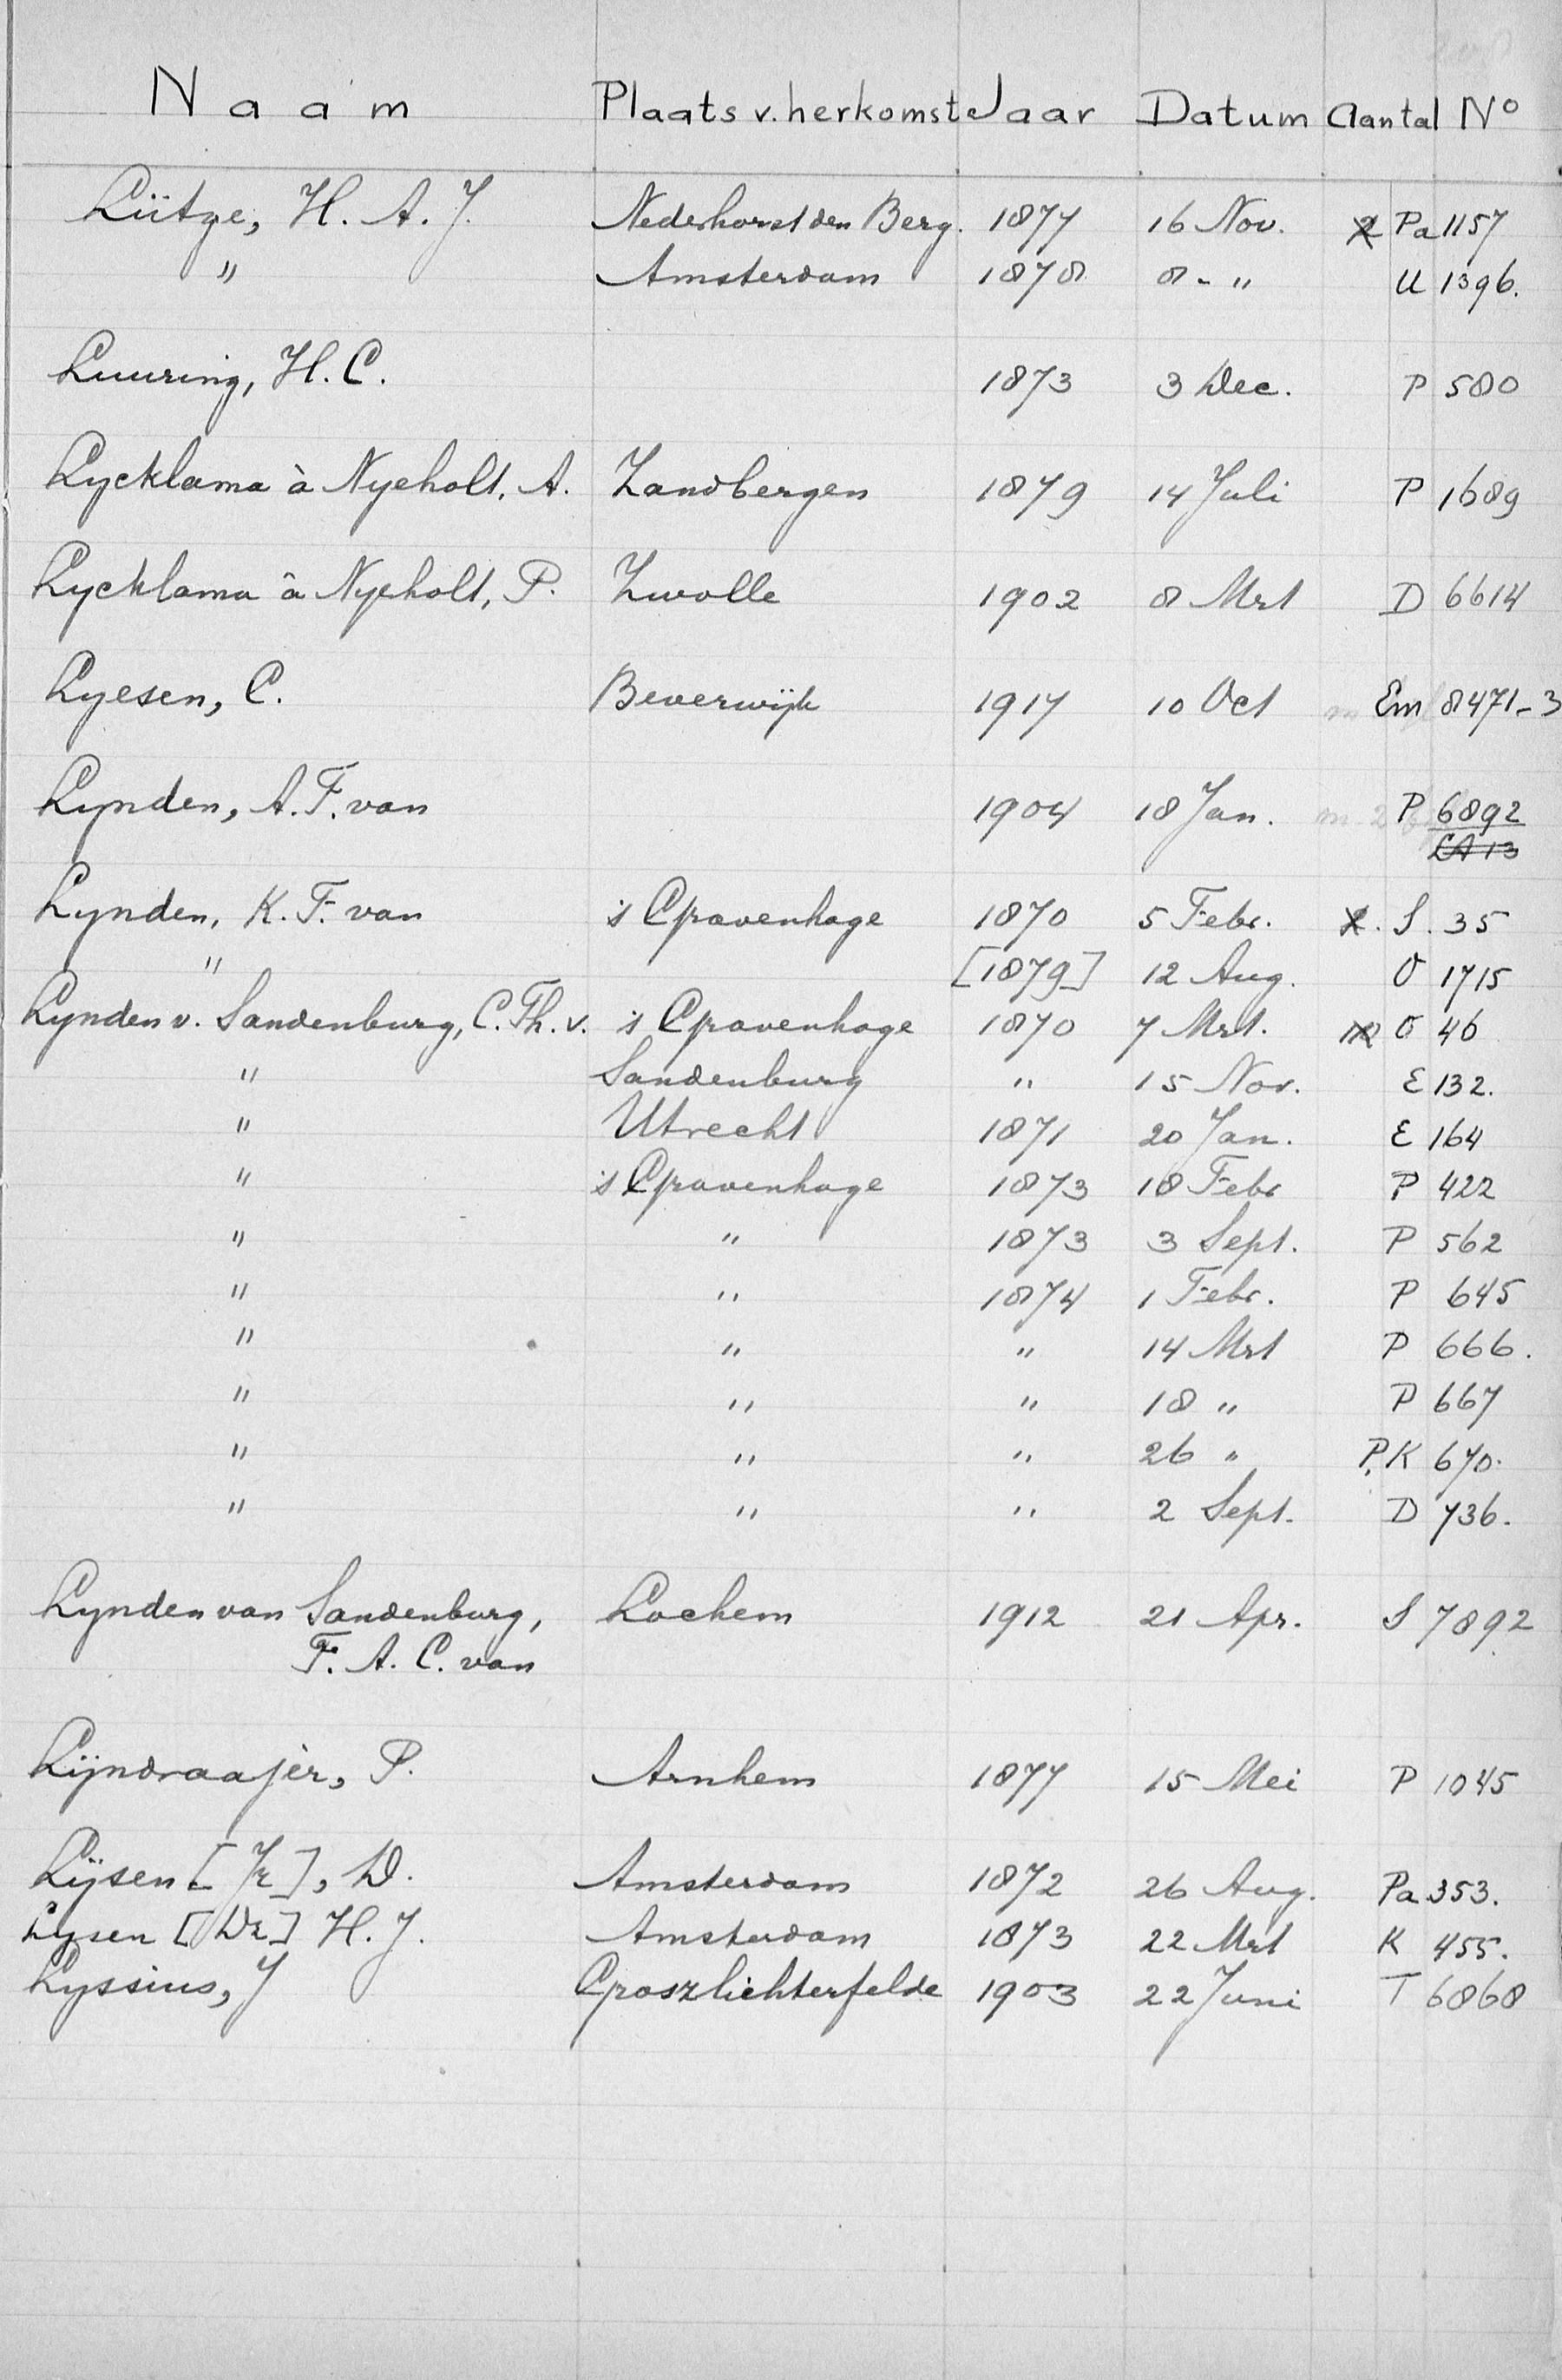 Naam Plaats v. herkomst Jaar Datum Aantal No
Lütge, H. A. J. Nederhorst den Berg. 1877 16 Nov. 2 Pa 1157
" Amsterdam 1878 8 - " U 1396.
Luuring, H. C. 1873 3 Dec. P 580
Lycklama à Nyeholt, A. Zandbergen 1879 14 Juli P 1689
Lycklama à Nyeholt, P. Zwolle 1902 8 Mrt D 6614
Lyesen, C. Beverwijk 1917 10 Oct Em 8471-3
Lynden, A. F. van 1904 18 Jan. P 6892
LA 13
Lynden, K. F. van 's Gravenhage 1870 5 Febr. S. 35
" [1879] 12 Aug. O 1715
Lynden v. Sandenburg, C. Th. v. 's Gravenhage 1870 7 Mrt. O 46
" Sandenburg " 15 Nov. E 132.
" Utrecht 1871 20 Jan. E 164
" 's Gravenhage 1873 18 Febr P 422
" " 1873 3 Sept. P 562
" " 1874 1 Febr. P 645
" " " 14 Mrt P 666.
" " " 18 " P 667
" " " 26 " P,K 670.
" " " 2 Sept. D 736.
Lynden van Sandenburg, Lochem 1912 21 Apr. S 7892
F. A. C. van
Lijndraajer, P. Arnhem 1877 15 Mei P 1045
Lijsen [Jr], D. Amsterdam 1872 26 Aug. Pa 353.
Lysen [Dr] H. J. Amsterdam 1873 22 Mrt K 455.
Lyssius, J Groszlichterfelde 1903 22 Juni T 6868